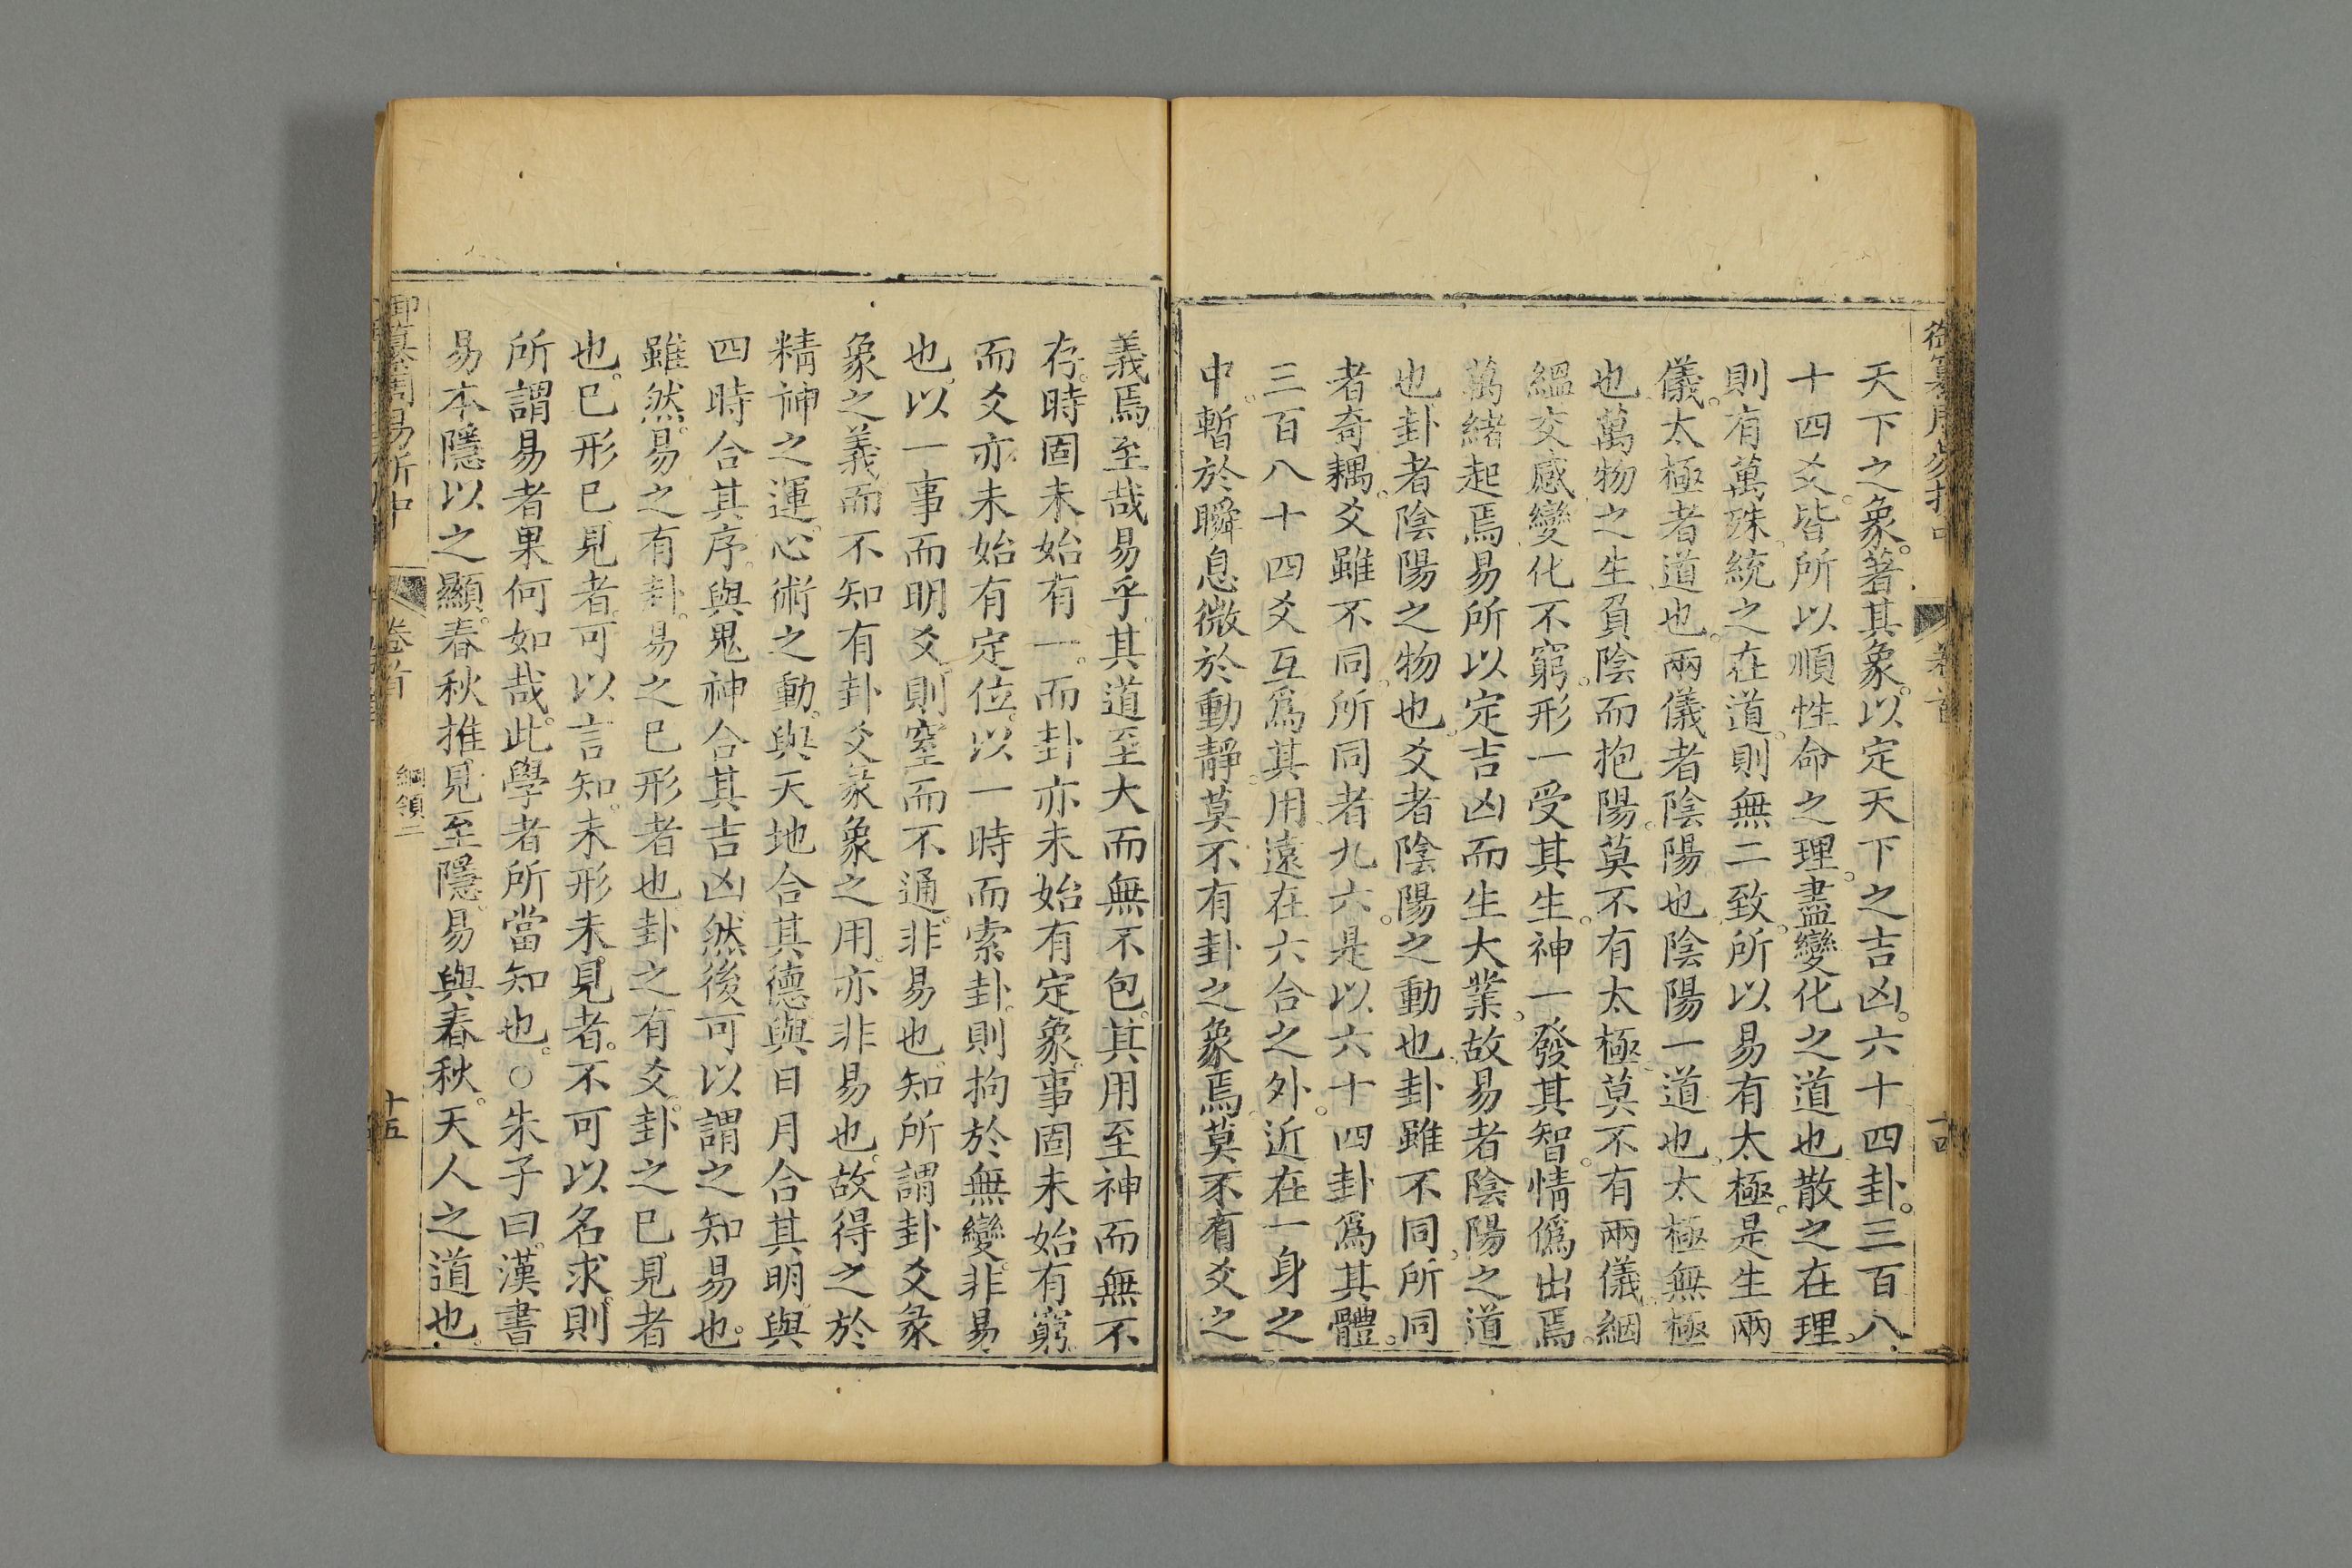 天下之象。著其象。以定天下之吉凶。六十四卦。三百八
十四爻。皆所以順性命之理。盡變化之道也。散之在理。
則有萬殊。統之在道。則無二致。所以易有太極。是生兩
儀。太極者道也。兩儀者陰陽也。陰陽一道也。太極無極
也。萬物之生。負陰而抱陽。莫不有太極。莫不有兩儀。絪
縕交感。變化不窮。形一受其生。神一發其智。情僞出焉。
萬緒起焉。易所以定吉凶而生大業。故易者陰陽之道
也。卦者陰陽之物也。爻者陰陽之動也。卦雖不同。所同
者奇耦。爻雖不同。所同者九六。是以六十四卦爲其體。
三百八十四爻互爲其用。遠在六合之外。近在一身之
中。暫於瞬息。微於動靜。莫不有卦之象焉。莫不有爻之
義焉。至哉易乎。其道至大而無不包。其用至神而無不
存。時固未始有一。而卦亦未始有定象。事固未始有窮。
而爻亦未始有定位。以一時而索卦。則拘於無變。非易
也。以一事而明爻。則窒而不通。非易也。知所謂卦爻彖
象之義。而不知有卦爻彖象之用。亦非易也。故得之於
精神之運。心術之動。與天地合其德。與日月合其明。與
四時合其序。與鬼神合其吉凶。然後可以謂之知易也。
雖然。易之有卦。易之已形者也。卦之有爻。卦之已見者
也。已形已見者。可以言知。未形未見者。不可以名求。則
所謂易者。果何如哉。此學者所當知也。○朱子曰。漢書
易本隱以之顯。春秋推見至隱。易與春秋。天人之道也。
御纂周易折中 卷首 綱領二 十五